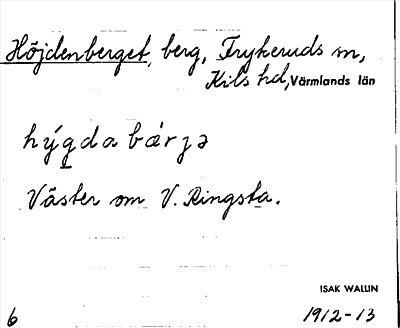 Höjdenberget, berg, Frykeruds sn,
Kils hd, Värmlands län
hýgda bárjə
Väster om V. Ringsta.
ISAK WALLIN
6 1912-13